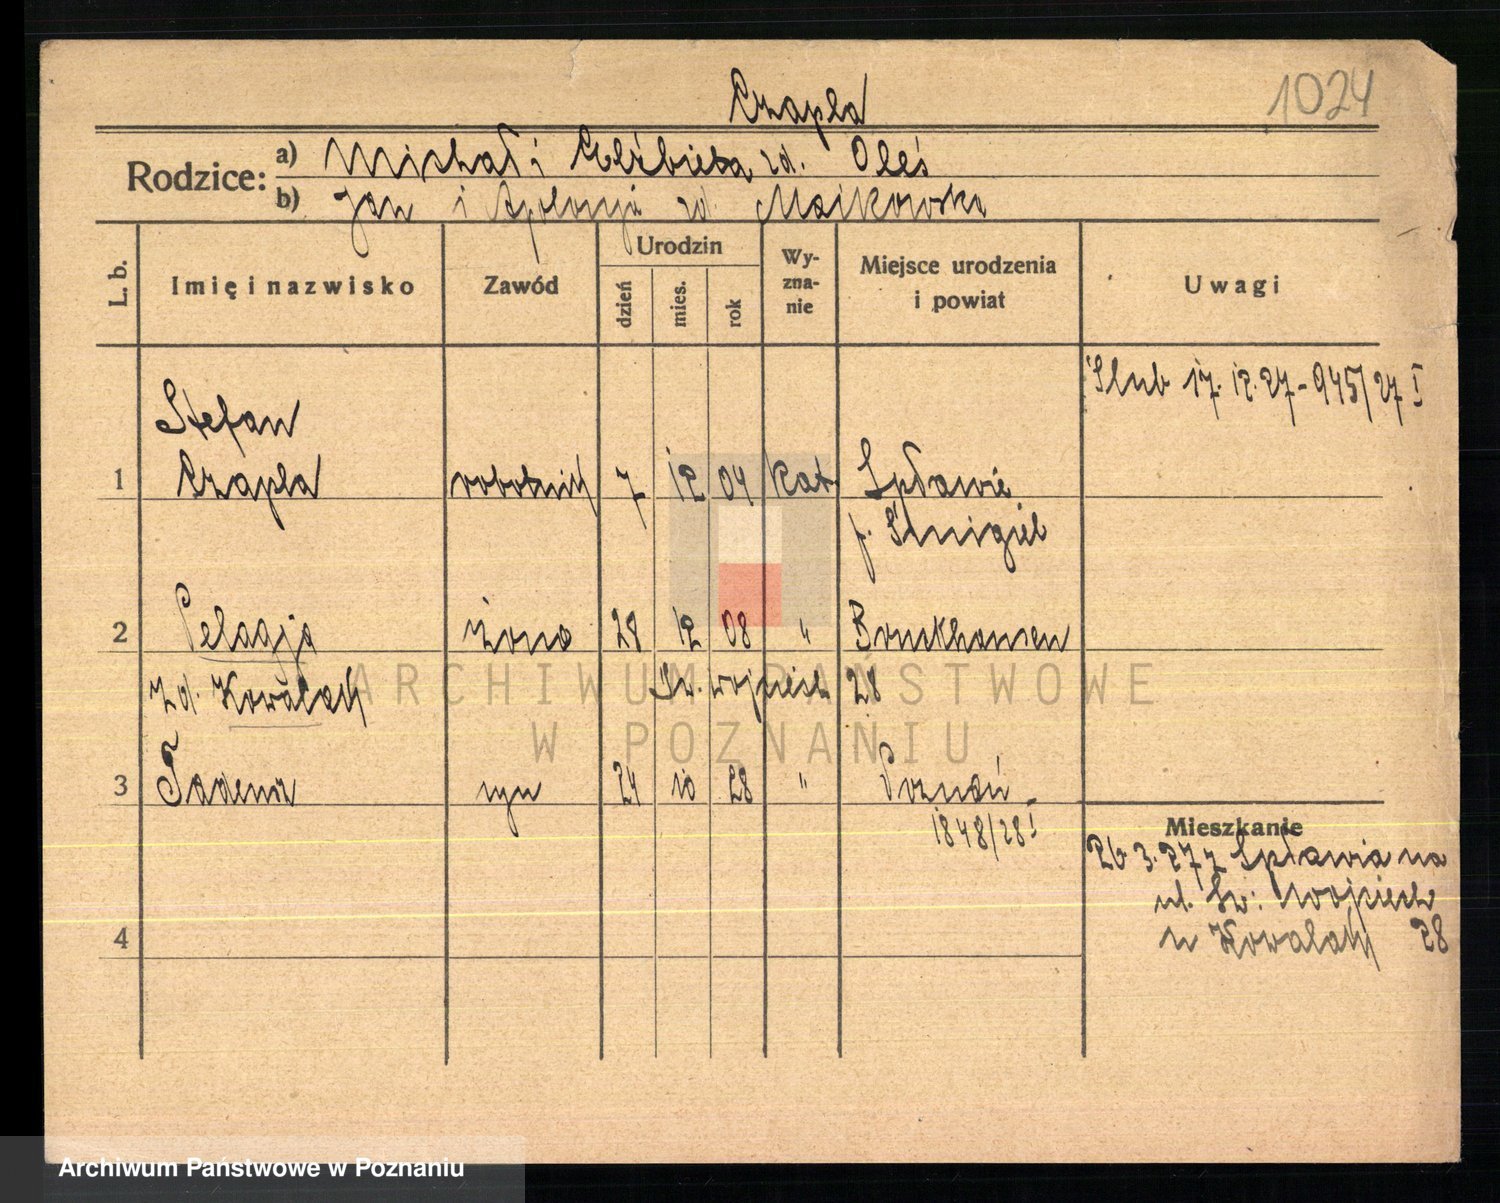 1024
Czapla
Rodzice:
a) Michał i Elżbieta zd. Oleś
b) Jan i Apolonja zd. Maikowska
L. b.
Imię i nazwisko
Zawód
Urodzin
dzień
mies.
rok
Wy-
zna-
nie
Miejsce urodzenia
i powiat
Uwagi
Ślub 17. 12. 27 - 945/27 I
Stefan
1 Czapla robotnik 7 12 04 kat. Spławie
p. Śmigiel
2 Pelagja żona 28 12 08 " Bruckhausen
zd. Kowalak Św. Wojciech 28
3 Tadeusz syn 24 10 28 " Poznań
1848/28 I
4
Mieszkanie
26 3. 27 z Spławia na
ul. Św. Wojciech
u Kowalak 28
ARCHIWUM PAŃSTWOWE
W POZNANIU
Archiwum Państwowe w Poznaniu